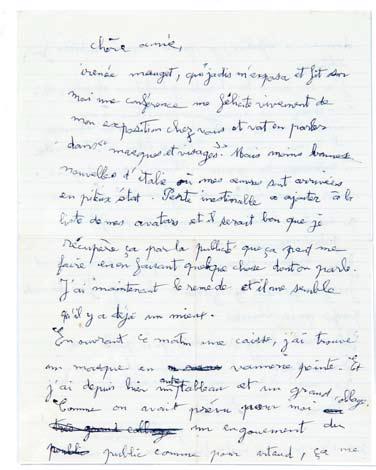 chère amie,
irénée mauget, qui jadis m'exposa et fit sur
moi une conférence me félicite vivement de
mon exposition chez vous et vat en parler
dans "masques et visages". Mais moins bonnes
nouvelles d'Italie où mes œuvres sont arrivées
en piteux état. Perte inestimable a ajouter à la
liste de mes avatars et il serait bon que je
récupère ça par la publicité que ça peut me
faire en en faisant quelque chose dont on parle.
J'ai maintenant le remede et il me semble
qu'il y a déjà un mieux.
En ouvrant ce matin une caisse, j'ai trouvé
un masque en vannerie peinte. Et
j'ai depuis hier un autre tableau et un grand collage.
Comme on avait prévu pour moi
un engouement du
public comme pour artaud, ça me